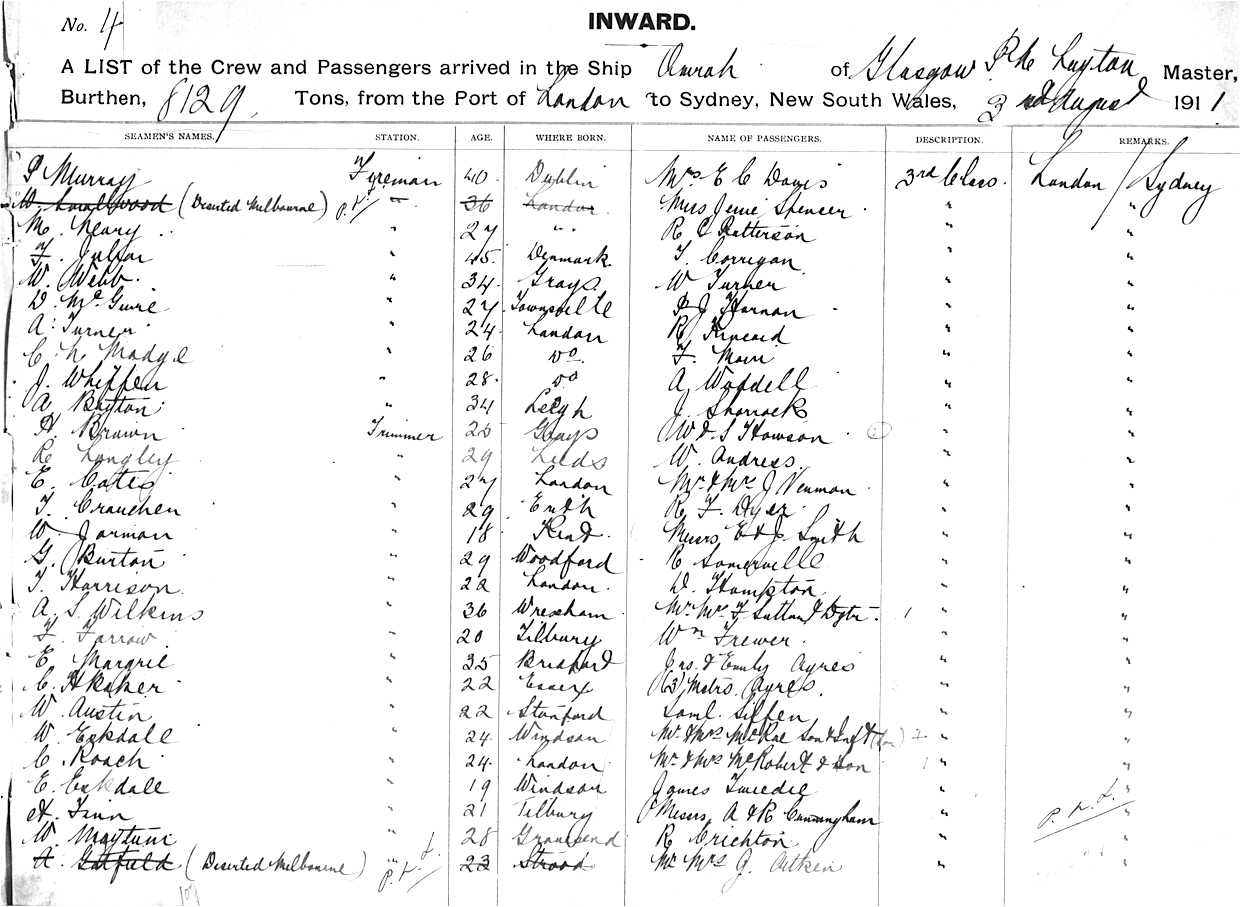 No. 4
INWARD.
A LIST of the Crew and Passengers arrived in the Ship Omrah of Glasgow Layton Master,
Burthen, 8129, Tons, from the Port of London to Sydney, New South Wales, 3rd August 1911
SEAMEN'S NAMES. STATION. AGE. WHERE BORN. NAME OF PASSENGERS. DESCRIPTION. REMARKS.
P Murray Fireman 40 Dublin Mrs E C Davis 3rd Class. London / Sydney
W. Smallwood (Deserted Melbourne) " 36 London Miss Jenie Spencer " "
M. Neary " 27 " " R C Patterson " "
F. " 45 Denmark T Corrigan " "
W. Webb " 34 Grays W Turner " "
D. McGuire " 27 Townsville P J Hornan " "
A. Turner " 24 London R Kincaid " "
C. H Madge " 26 Do F. Moir " "
J. Whiffen " 28 Do A Waddell " "
A Buxton " 34 Leigh J. Shorrock " "
H. Brown Trimmer 25 Grays W & S Howson " "
R. Langley " 29 Leeds W. Andress " "
E. Cates " 27 London Mr & Mrs J Venman " "
T. " 29 Erith R F. Dyer " "
W Jarman " 18 Kent Messrs E & J. Smith " "
G. Burton " 29 Woodford R Somerville " "
T. Harrison " 22 London D. Hampton " "
A. S. Wilkins " 36 Wrexham Mr Mrs F Sutton & Dgtr. 1 " "
F. Farrow " 20 Tilbury Wm Frewer " "
E. Margrie " 35 Jas. & Emily Ayres " "
C. " 22 Essex (3) Mstrs. Ayres. " "
W. Austin " 22 Stanford Saml. Siffen " "
W. Eskdale " 24 Windsor Mr & Mrs McRae Son & Inft 2 " "
C. Roach " 24 London Mr & Mrs McRobert & Son 1 " "
E. Eskdale " 19 Windsor James Tweedie " "
H. Finn " 21 Tilbury Messrs A & R Cunningham " "
W. Maytum " 28 Gravesend R Crichton " "
A. Gatfield (Deserted Melbourne) " 23 Strood Mr Mrs J. Aitken " "